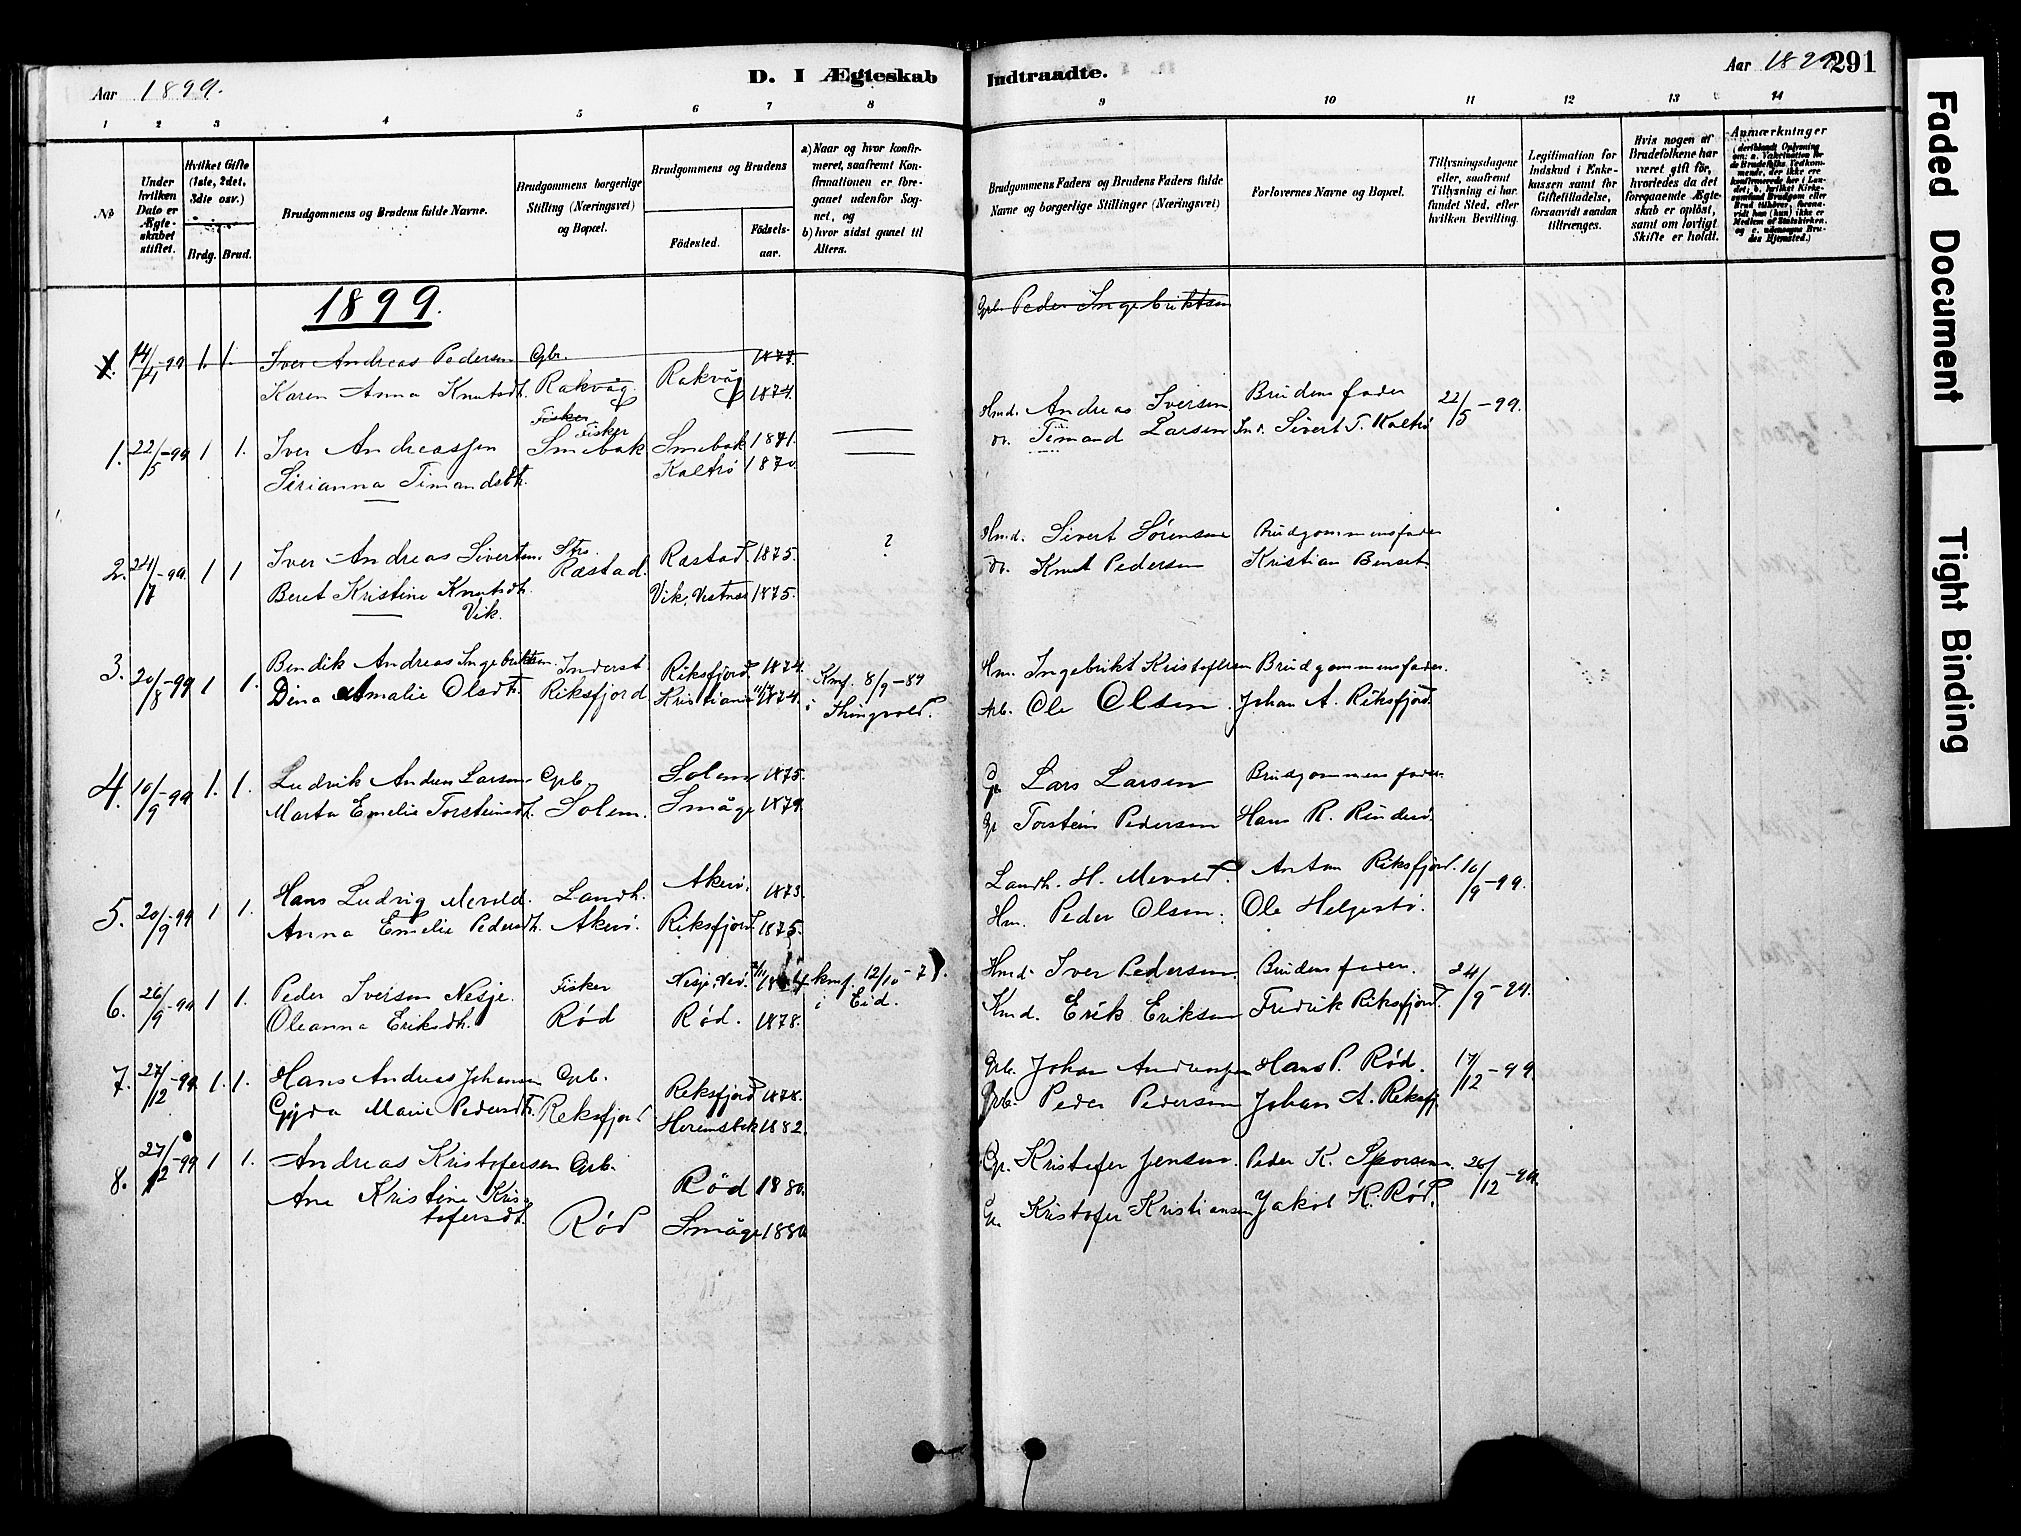 Aar 1899.
D. I Ægteskab
Indtraadte.
Aar 1899 291
1 2 3 4 5 6 7 8
9 10 11 12 13 14
No
Under hvilken Dato er Ægteskabet stiftet.
Hvilket Gifte (1ste, 2det, 3die osv.)
Brdg. Brud.
Brudgommens og Brudens fulde Navne.
Brudgommens borgerlige Stilling (Næringsvei) og Bopæl.
Brudgommens og Brudens
Födested.
Födselsaar.
a) Naar og hvor konfirmeret, saafremt Konfirmationen er foregaaet udenfor Sognet, og
b) hvor sidst gaaet til Alters.
Brudgommens Faders og Brudens Faders fulde Navne og borgerlige Stillinger (Næringsvei)
Forlovernes Navne og Bopæl.
Tillysningsdagene eller, saafremt Tillysning ei har fundet Sted, efter hvilken Bevilling.
Legitimation for Indskud i Enkekassen samt for Giftetilladelse, forsaavidt saadan tiltrænges.
Hvis nogen af Brudefolkene har været gift för, hvorledes da det foregaaende Ægteskab er oplöst, samt om lovligt Skifte er holdt.
Anmærkninger
1899.
Gbr. Peder Ingebriktsen
1. 14/4-99 1. 1. Iver Andreas Pedersen Gbr. 1877.
Karen Anna Knutsdt. Rakvåg Rakvåg 1874.
Fisker
1. 22/5-99 1 1. Iver Andreassen Fisker Smebak Smebak 1871. Hmd. Andreas Iversen Brudens fader 22/5-99.
Sirianna Timandsdt. Kaltrø 1870. do. Timand Larsen Ind. Sivert T. Kaltrø
2. 24/7-99 1 1 Iver Andreas Sivertsen. Strs. Ræstad. Ræstad. 1875. ? Hmd. Sivert Sörensen Brudgommens fader
Beret Kristine Knutsdt. Vik, Vestnes 1875. do. Knut Pedersen Kristian Benset
Vik.
3. 20/8-99 1 1. Bendik Andreas Ingebriktsen. Inderst. Riksfjord 1874. Kmf. 8/9-89 Hm. Ingebrikt Kristofersen Brudgommens fader.
Dina Amalie Olsdt. Riksfjord Kristiania 1874. i Thingvold. Arb. Ole Olsen. Johan A. Riksfjord.
4. 10/9-99 1. 1. Ludvik Andreas Larsen Gbr. Solem 1875. Gr. Lars Larsen Brudgommens fader
Marta Emelie Torsteinsdt. Solem. Småge 1879. Gr. Torstein Pedersen Hans R. Rindarö.
5. 20/9-99 1 1. Hans Ludvig Mevold. Landh. Akerö. 1873. Landh. H. Mevold. Anton Riksfjord. 10/9-99.
Anna Emelie Pedersdt. Akerö. Riksfjord. 1875. Hm. Peder Olsen. Ole Helgestö.
6. 26/9-99 1 1. Peder Iversen Nesje. Fisker Nesje, kmf. 12/10-7 Hmd. Iver Pedersen. Brudens fader. 24/9-99.
Oleanna Eriksdt. Rød Rød. 1878. i Eid. Hmd. Erik Eriksen Fredrik Riksfjord.
7. 27/12-99 1. 1. Hans Andreas Johansen Gbr. Reksfjord 1878. Grb. Johan Andreassen Hans P. Rød. 17/12-99.
Gyda Marie Pedersdt. Reksfjord Heremsbek 1882. Grb. Peder Pedersen Johan A. Reksfj.
8. 27/12-99 1 1. Andreas Kristofersen Grb. Rød 1880. Gr. Kristofer Jensen. Peder K. 26/12-99.
Ane Kristine Kris-
tofersdt. Rød Småge 1880 Gr. Kristofer Kristiansen Jakob K. Rød.
Faded Document
Tight Binding